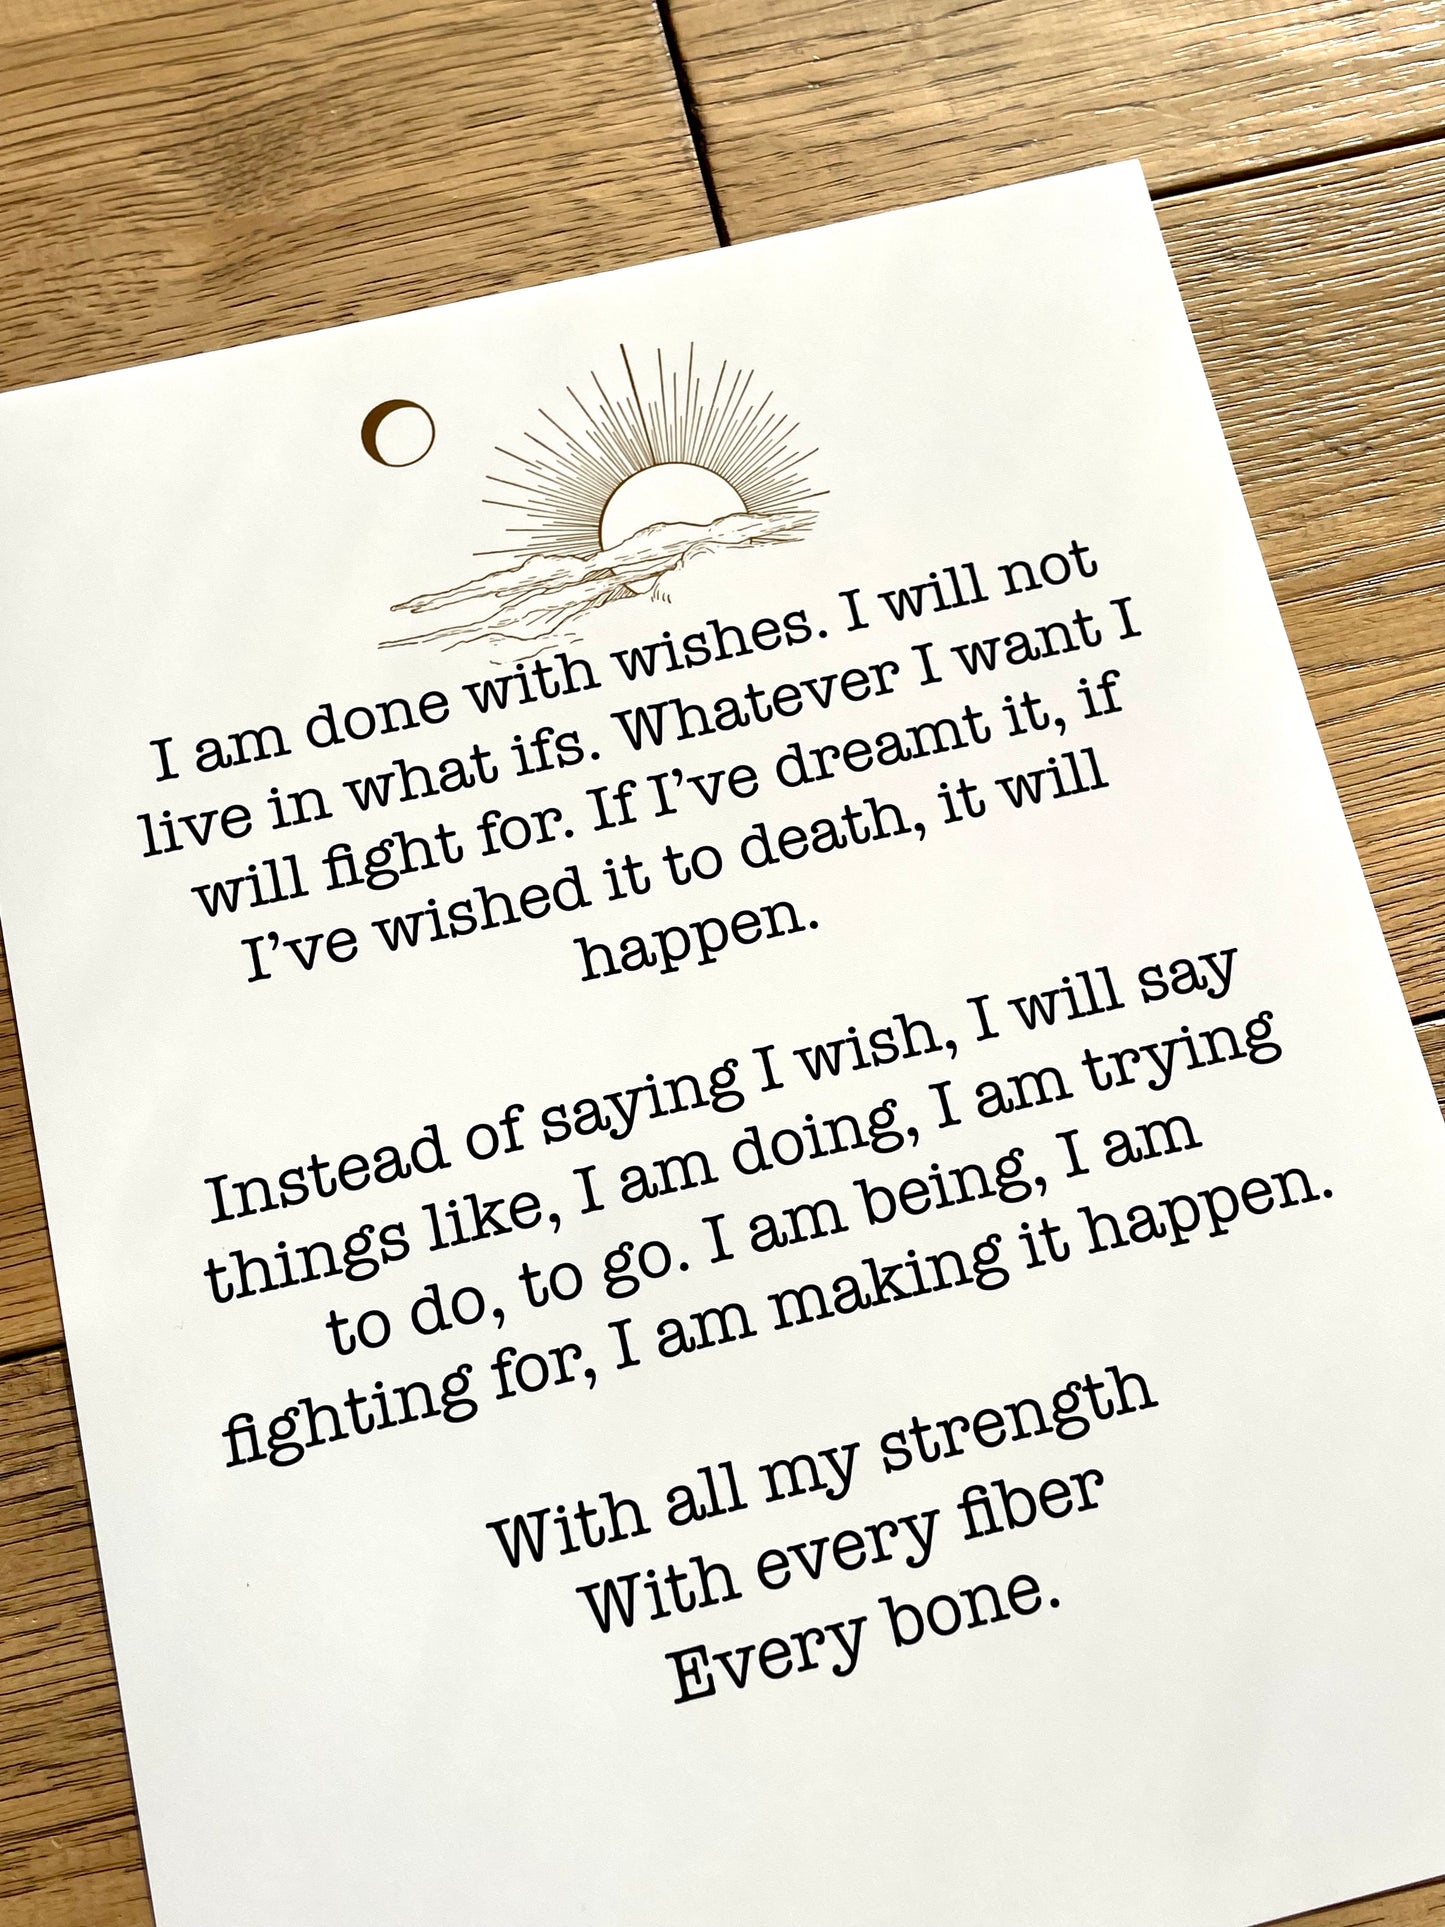 I am done with wishes. I will not
live in what ifs. Whatever I want I
will fight for. If I’ve dreamt it, if
I’ve wished it to death, it will
happen.
Instead of saying I wish, I will say
things like, I am doing, I am trying
to do, to go. I am being, I am
fighting for, I am making it happen.
With all my strength
With every fiber
Every bone.